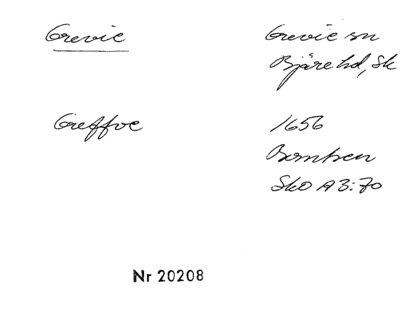 Grevie
Grevie sn
Bjäre hd, Sk
Greffvie
1656
Bomhsen
SkO A3:70
Nr 20208